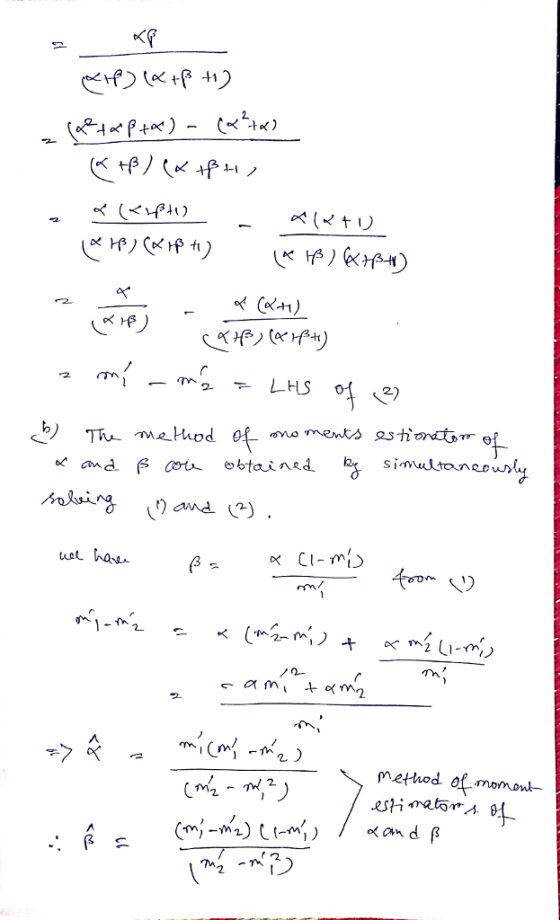 = αβ / (α+β)(α+β+1)
= (α²+αβ+α) - (α²+α) / (α+β)(α+β+1)
= α(α+β+1) / (α+β)(α+β+1) - α(α+1) / (α+β)(α+β+1)
= α / (α+β) - α(α+1) / (α+β)(α+β+1)
= m₁′ - m₂′ = LHS of (2)
b) The method of moments estimator of
α and β are obtained by simultaneously
solving (1) and (2).
we have β = α(1-m₁′) / m₁′ from (1)
m₁′-m₂′ = α(m₂′-m₁′) + αm₂′(1-m₁′) / m₁′
= -αm₁′² + αm₂′ / m₁′
=> α̂ = m₁′(m₁′-m₂′) / (m₂′-m₁′²)
∴ β̂ = (m₁′-m₂′)(1-m₁′) / (m₂′-m₁′²)
Method of moment
estimators of
α and β